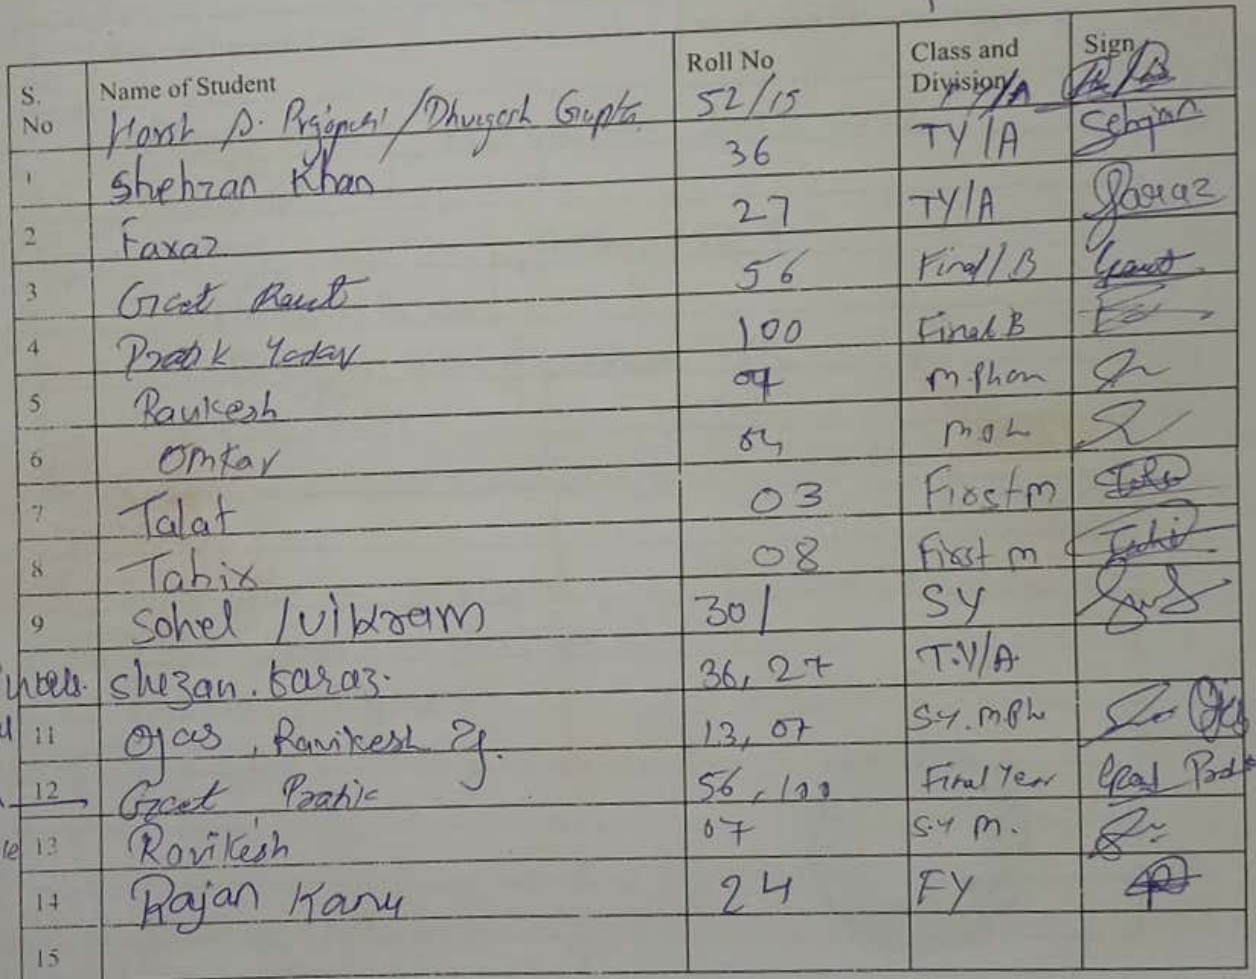 S. No Name of Student Roll No Class and Division Sign
Harsh D. / Gupta 52/15
1 Shehzan Khan 36 TY/A Sehjan
2 Faraz 27 TY/A Faraz
3 Geet Raut 56 Final/B
4 Pratik Yadav 100 Final B
5 Ravikesh 07 M.Pharm
6 Omkar 04
7 Talat 03 First m
8 Tahir 08 First m
9 Sohel / Vikram 30/ SY
shezan. faraz. 36, 27 T.Y/A.
11 Ojas, Ravikesh 13, 07 SY. M.Ph
12 Geet Pratik 56, 100 Final Year
13 Ravikesh 07 S.Y M.
14 Rajan Kanu 24 FY
15